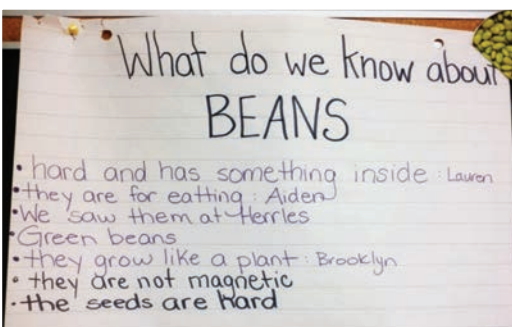 What do we know about
BEANS
• hard and has something inside : Lauren
• they are for eatting : Aiden
• We saw them at Herrles
• Green beans
• they grow like a plant : Brooklyn
• they are not magnetic
• the seeds are hard